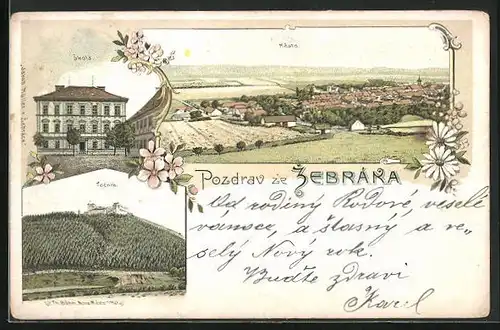 Škola.
Město.
Pozdrav ze ŽEBRÁKA
Točník.
Od rodiny Rodové, veselé
vánoce, a šťasný a ve-
selý Nový rok.
Buďte zdrávi
Karel